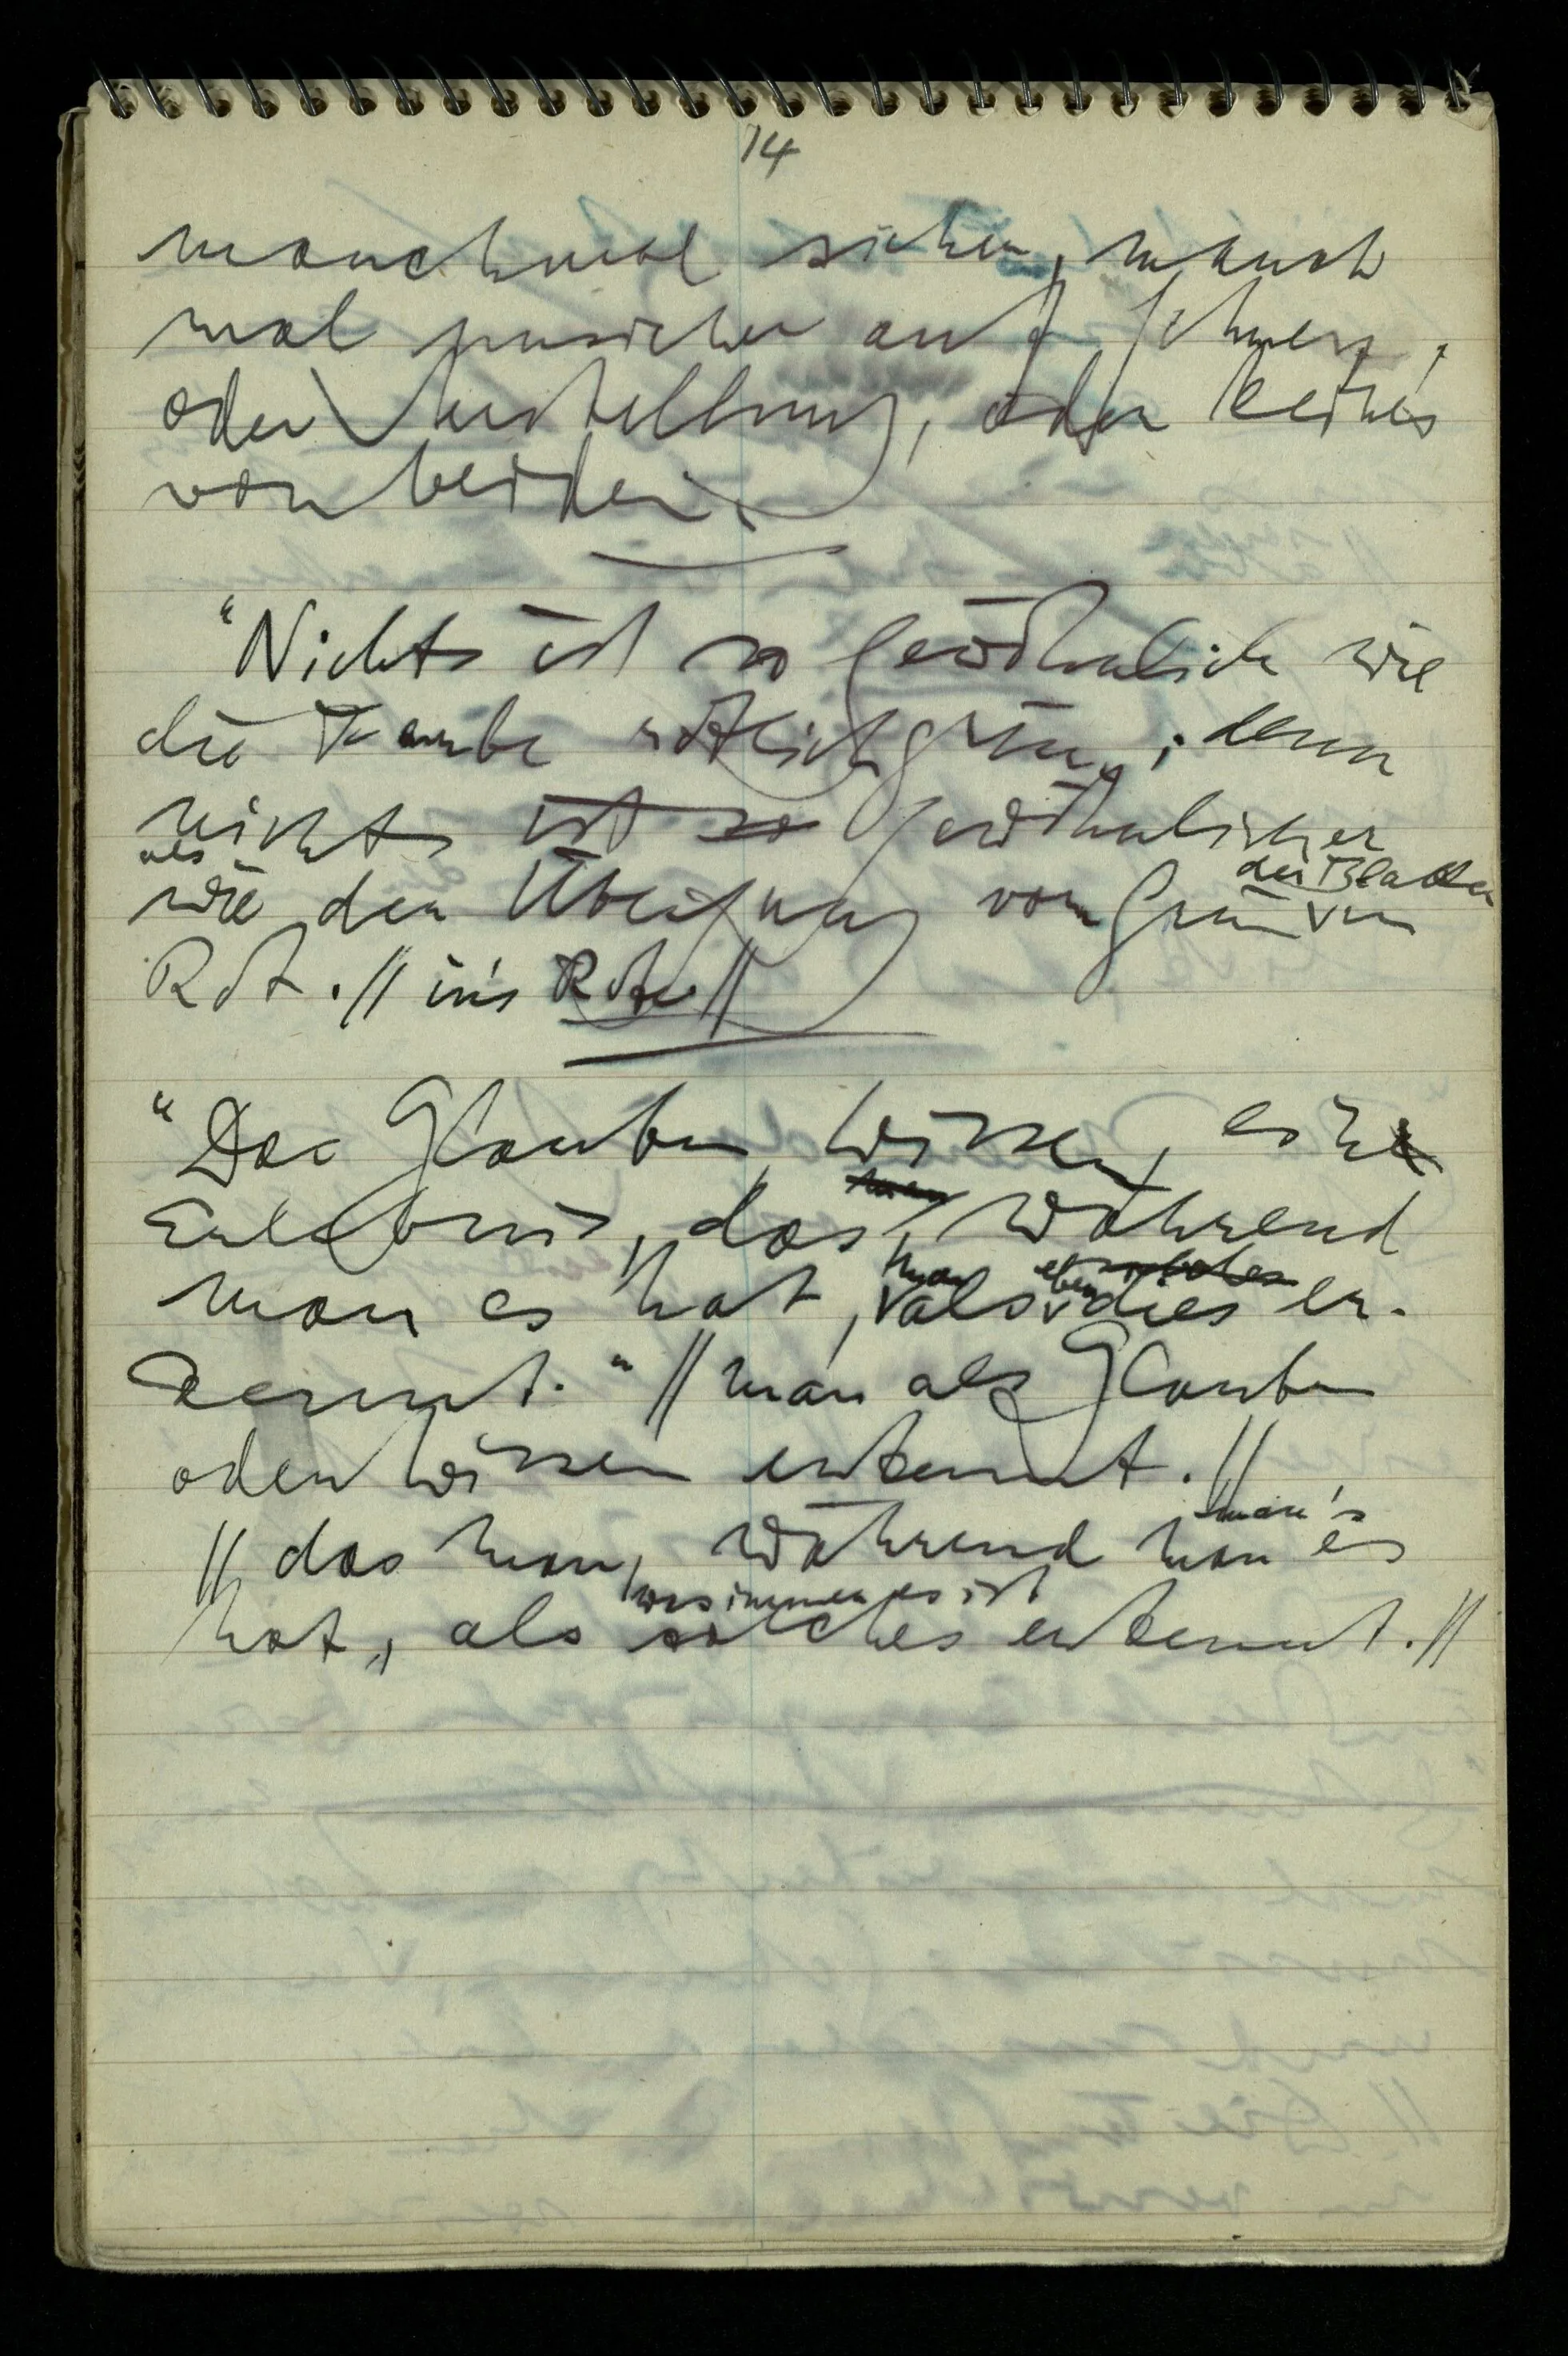 14
manchmal sicher, manch
mal unsicher auf Schmerz,
oder Verstellung, oder keines
von beiden.
"Nichts ist so gewöhnlich wie
die Farbe rötlichgrün; denn
nichts ist so gewöhnlicher
als
wie der Übergang von Grün in
der Blätter
Rot. // in's Rote //
"Das Glauben, Wissen, eine
man
Erlebnis, das, während
man eben solches
man es hat, als dies er-
kennt." // man als Glauben
oder Wissen erkennt. //
man's
// das man, während man es
was immer es ist
hat, als solches erkennt. //